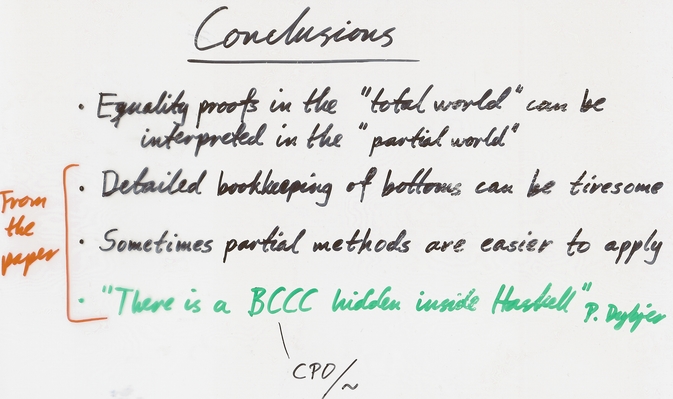 Conclusions
• Equality proofs in the "total world" can be
interpreted in the "partial world"
From
the
paper
• Detailed bookkeeping of bottoms can be tiresome
• Sometimes partial methods are easier to apply
• "There is a BCCC hidden inside Haskell" P. Dybjer
CPO/~